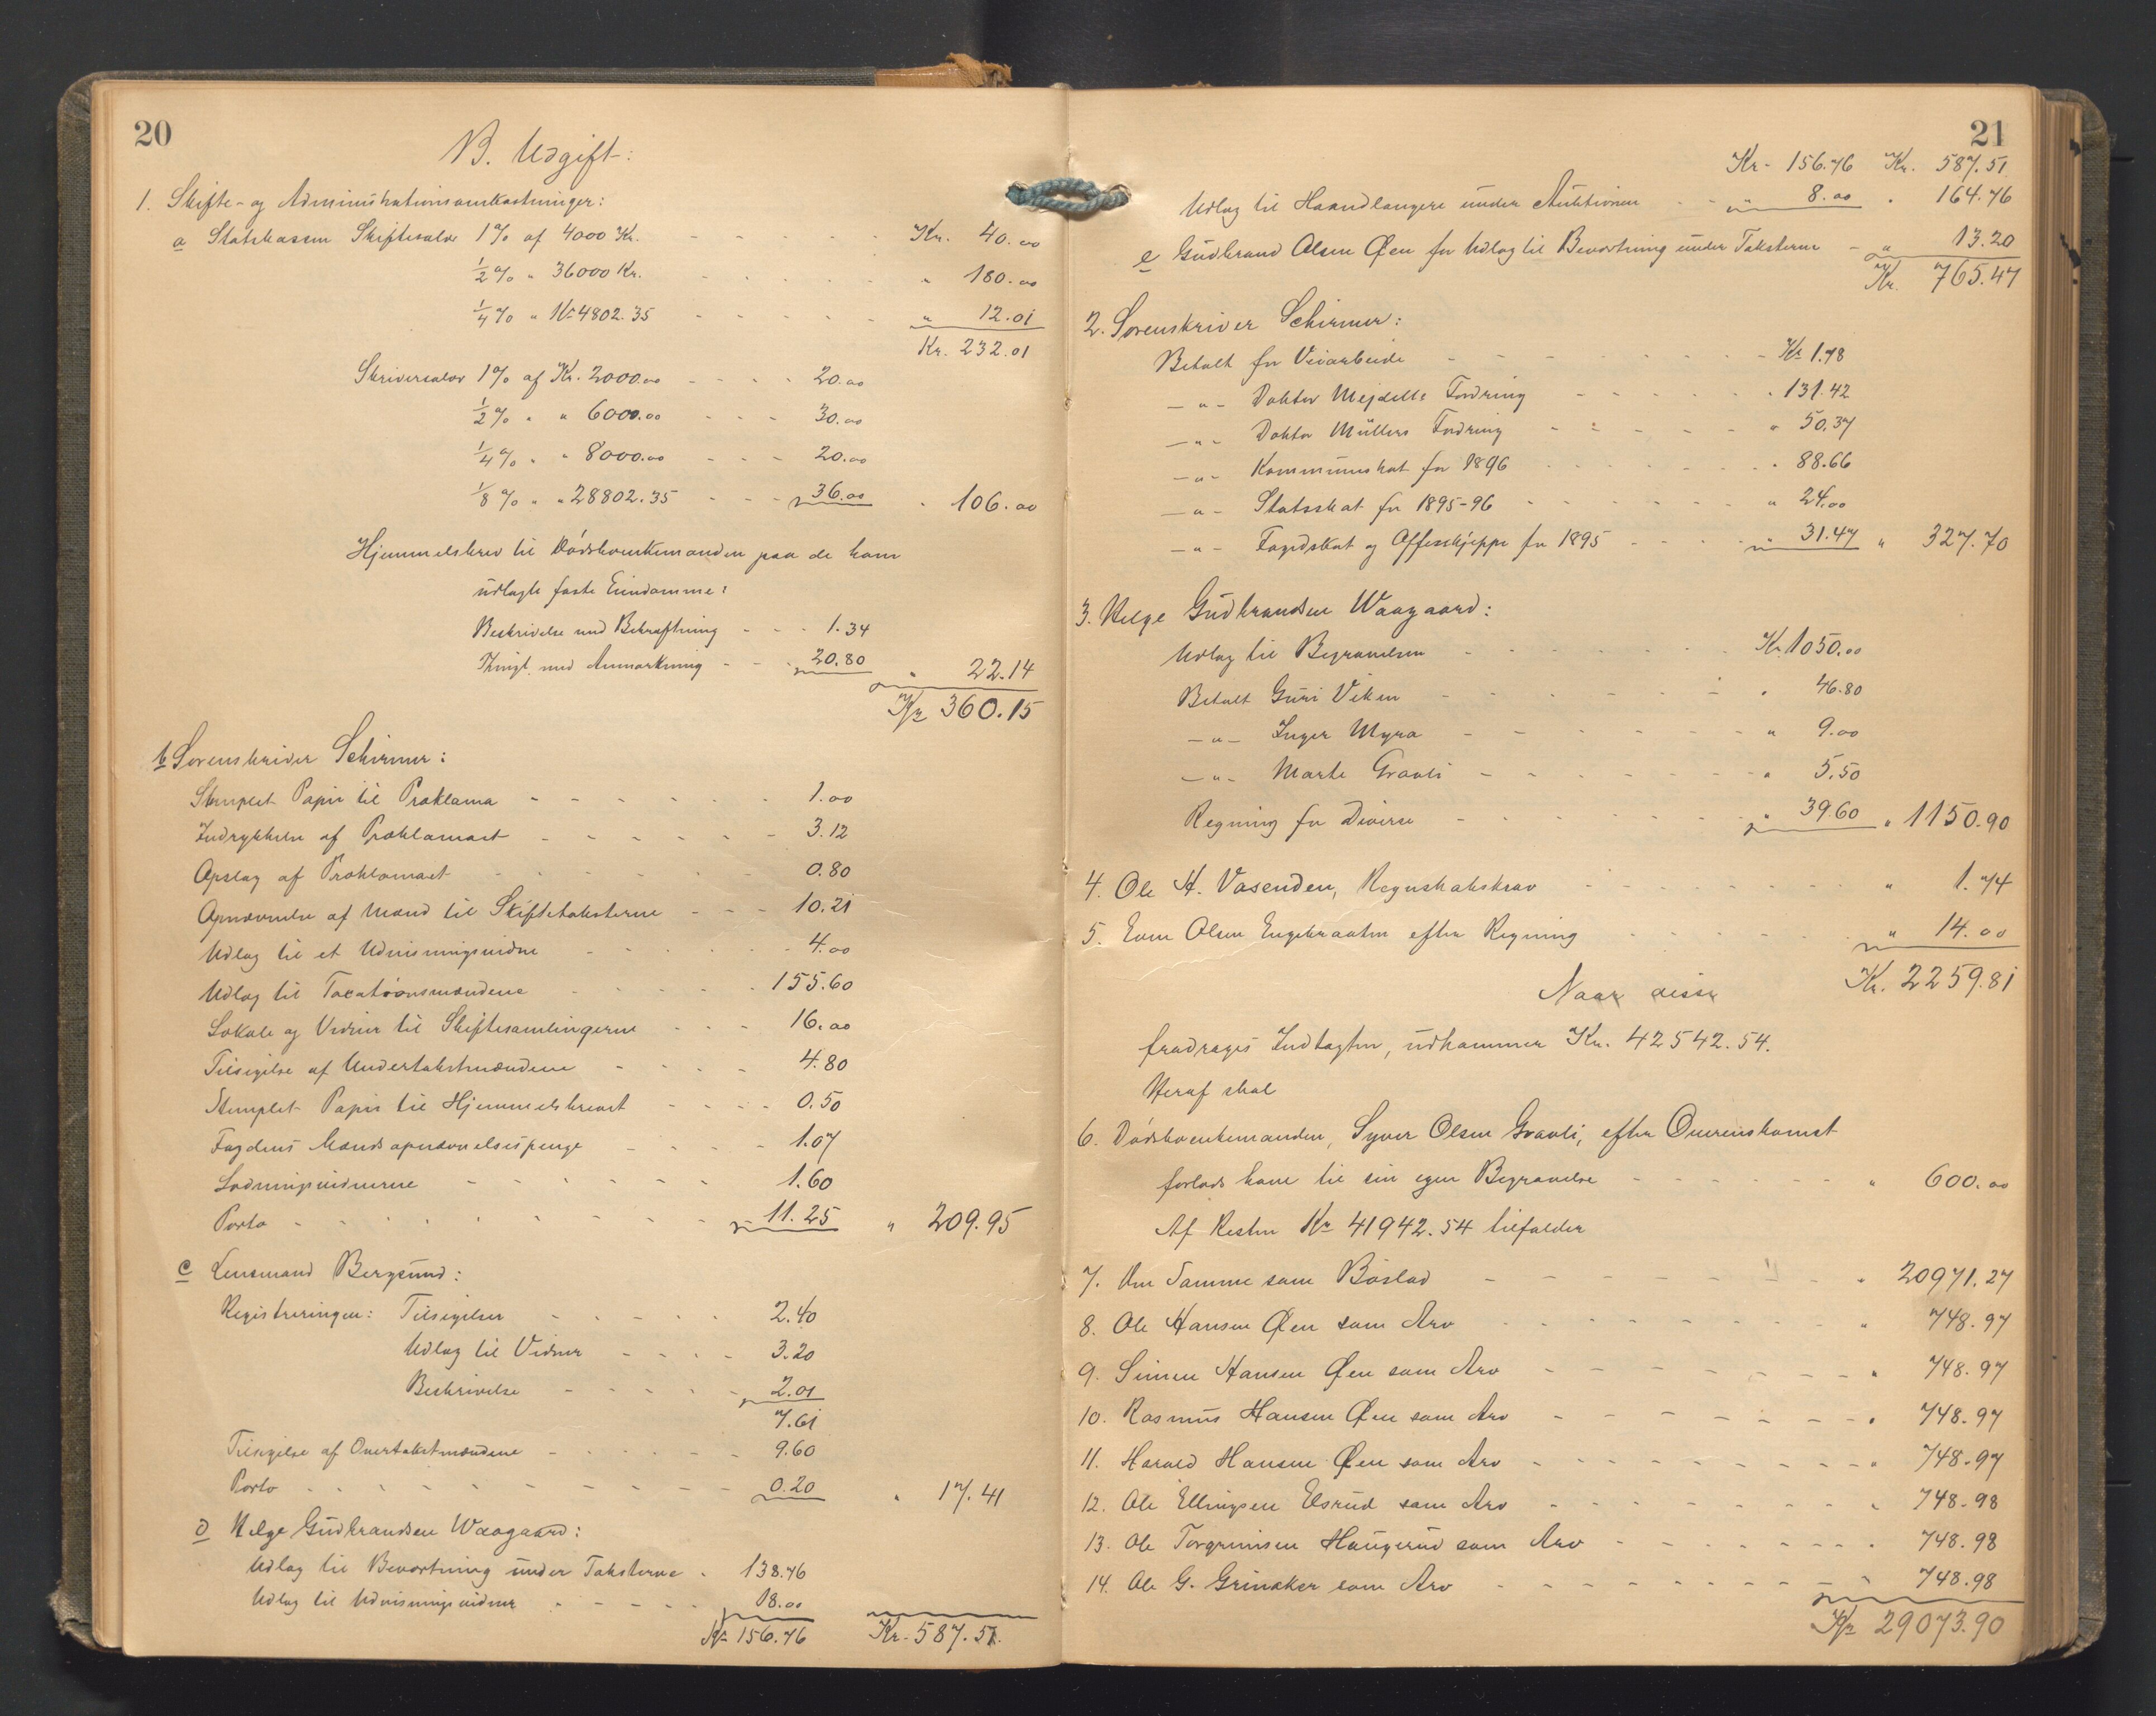 20
B. Udgift:
1. Skifte- og Administrationsomkostninger:
a Statskassen Skiftesalær 1% af 4000 Kr. - - - - - Kr. 40.00
1/2% " 36000 Kr. - - - - - " 180.00
1/4% " Kr 4802.35 - - - - - " 12.01
Kr. 232.01
Skriversalær 1% af Kr. 2000.00 - - - - 20.00
1/2% " " 6000.00 - - - 30.00
1/4% " " 8000.00 - - - 20.00
1/8% " " 28802.35 - - - 36.00 " 106.00
Hjemmelsbrev til Dødsboenkemanden paa de ham
udlagte faste Eiendomme:
Beskrivelse med Bekræftning - - - 1.34
Thingl. med Anmærkning - - - 20.80 " 22.14
Kr 360.15
b Sorenskriver Schirmer:
Stemplet Papir til Proklama - - - - - - 1.00
Indrykkelse af Proklamaet - - - - - - 3.12
Opslag af Proklamaet - - - - - - 0.80
Opnævnelse af Mænd til Skiftetaksterne - - - 10.21
Udlag til et Udvisningsvidne - - - - - 4.00
Udlag til Taxationsmændene - - - - - 155.60
Lokale og Vidner til Skiftesamlingerne - - - 16.00
Tilsigelse af Undertakstmændene - - - - 4.80
Stemplet Papir til Hjemmelsbrevet - - - - 0.50
Fogdens Mandsopnævnelsespenge - - - - 1.07
Lodningsvidnerne - - - - - - 1.60
Porto - - - - - - - - 11.25 " 209.95
c Lensmand Bergsund:
Registreringen: Tilsigelser - - - - - 2.40
Udlag til Vidner - - - - 3.20
Beskrivelse - - - - - 2.01
7.61
Tilsigelse af Overtakstmændene - - - - - 9.60
Porto - - - - - - - - - 0.20 " 17.41
d Helge Gudbrandsen Waagaard:
Udlag til Beværtning under Taksterne - 138.76
Udlag til Udvisningsvidner - - - - - 18.00
Kr 156.76 Kr. 587.51.
21
Kr. 156.76 Kr. 587.51
Udlag til Haandlangere under Auktionen - - " 8.00 " 164.76
e Gudbrand Olsen Øen for Udlag til Beværtning under Taksterne - " 13.20
Kr. 765.47
2. Sorenskriver Schirmer:
Betalt for Veiarbeide - - - - - - - - - Kr 1.78
-"- Doktor Mejdells Fordring - - - - - " 131.42
-"- Doktor Müllers Fordring - - - - - " 50.37
-"- Kommuneskat for 1896 - - - - - - - " 88.66
-"- Statsskat for 1895-96 - - - - - - " 24.00
-"- Fogdskat og Offerskjeppe for 1895 - - - - " 31.47 " 327.70
3. Helge Gudbrandsen Waagaard:
Udlag til Begravelsen - - - - - - - Kr. 1050.00
Betalt Guri Viken - - - - - - - " 46.80
-"- Inger Myra - - - - - - " 9.00
-"- Marte Gravli - - - - - - - " 5.50
Regning for Diverse - - - - - - - " 39.60 " 1150.90
4. Ole H. Vasenden, Regnskabskrav - - - - - - - - - " 1.74
5. Even Olsen Engebraaten efter Regning - - - - - - - " 14.00
Kr. 2259.81
Naar disse
fradrages Indtægten, udkommer Kr. 42542.54.
Heraf skal
6. Dødsboenkemanden, Syver Olsen Gravli, efter Overenskomst
forlods have til sin egen Begravelse - - - - - - - " 600.00
Af Resten Kr 41942.54 tilfalder
7. Den Samme som Boslod - - - - - - - - " 20971.27
8. Ole Hansen Øen som Arv - - - - - - - - " 748.97
9. Simen Hansen Øen som Arv - - - - - - - - " 748.97
10. Rasmus Hansen Øen som Arv - - - - - - - - " 748.97
11. Harald Hansen Øen som Arv - - - - - - - - " 748.97
12. Ole Ellingsen Elsrud som Arv - - - - - - - - " 748.98
13. Ole Torgrimsen Haugerud som Arv - - - - - - - " 748.98
14. Ole G. Grinaker som Arv - - - - - - - - - " 748.98
Kr 29073.90